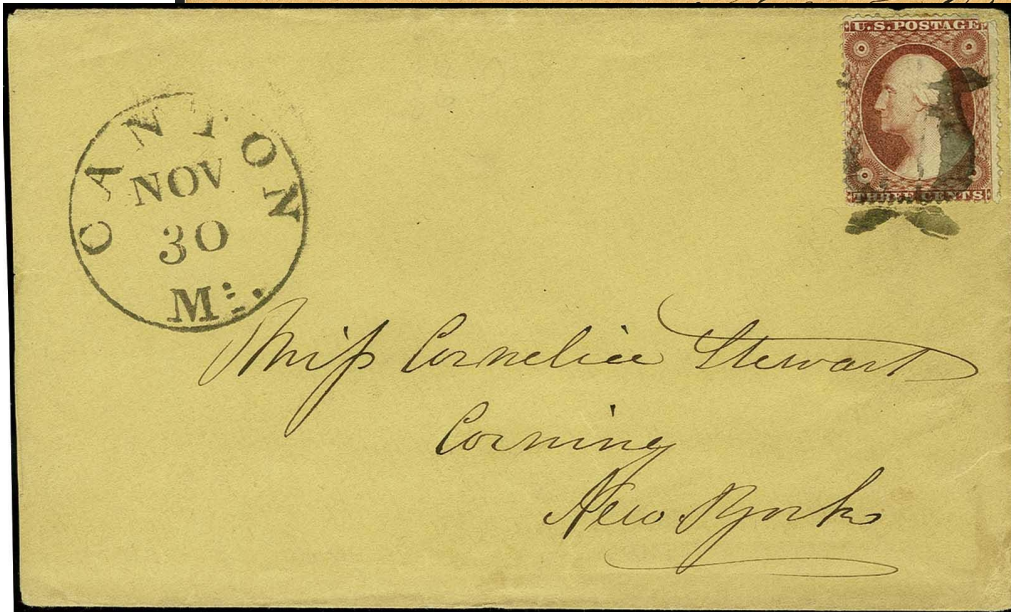 U.S. POSTAGE
THREE CENTS
CANTON
NOV
30
Mi.
Miss Cornelia Stewart
Corning
New York